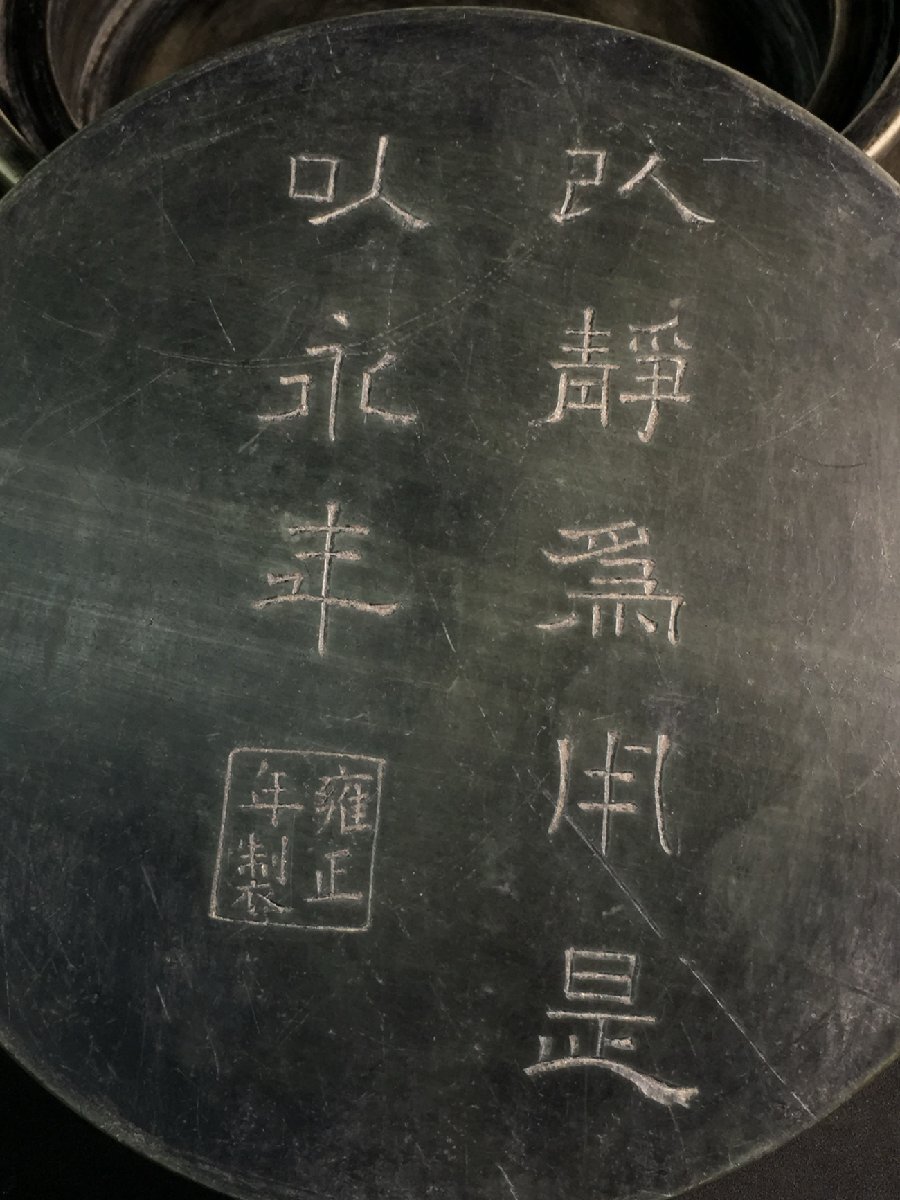 以靜為用是
以永年
雍正
年製